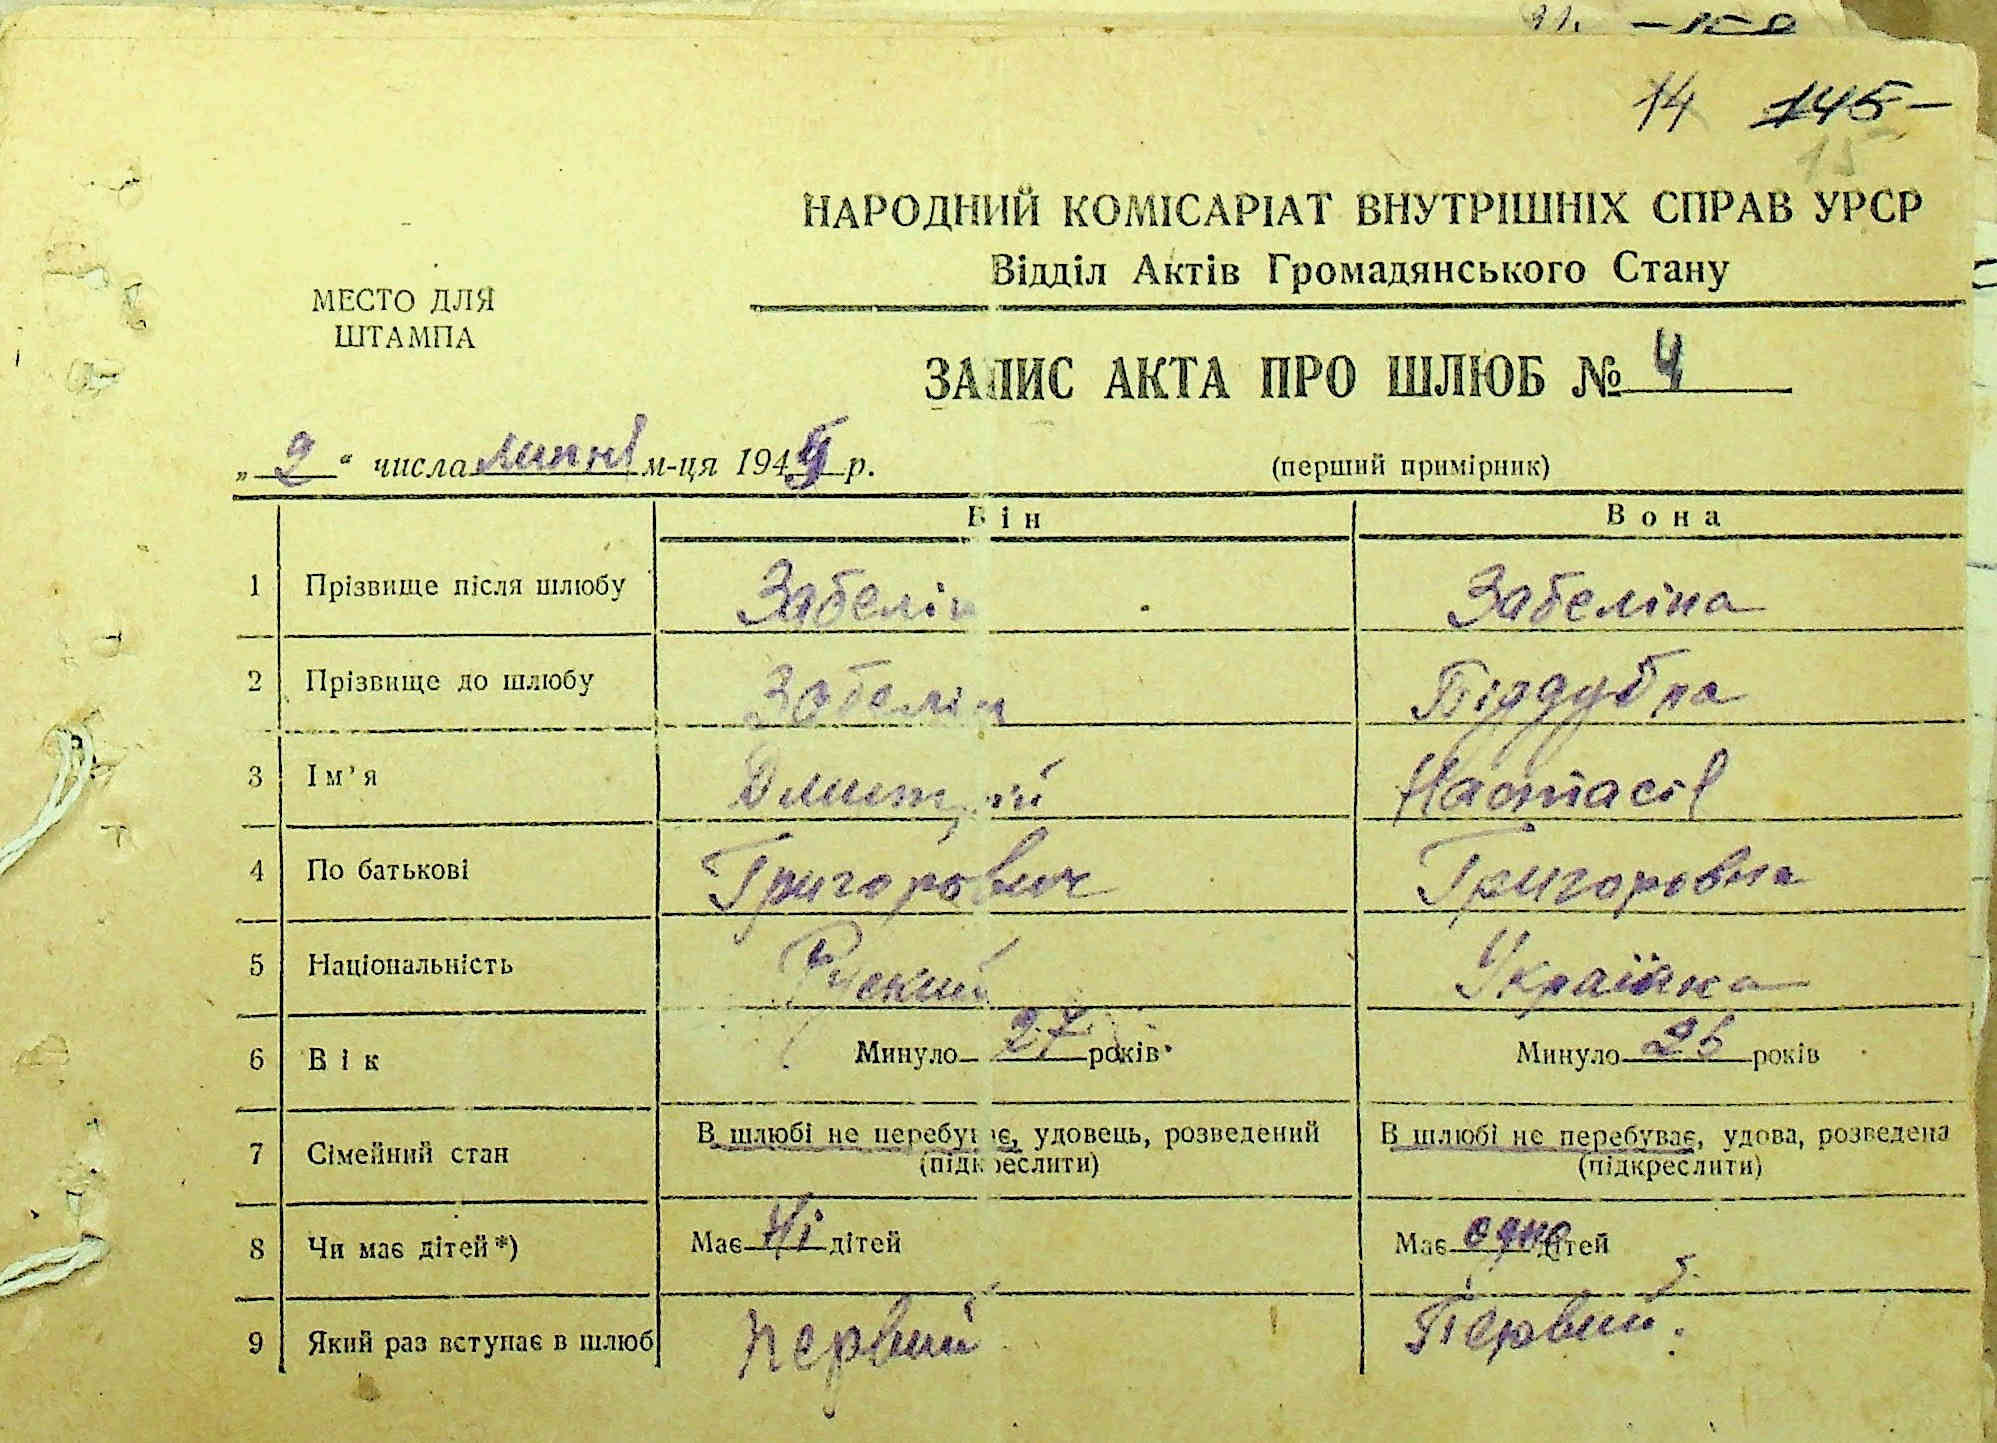 14 145-
15
НАРОДНИЙ КОМІСАРІАТ ВНУТРІШНІХ СПРАВ УРСР
Відділ Актів Громадянського Стану
МЕСТО ДЛЯ
ШТАМПА
ЗАПИС АКТА ПРО ШЛЮБ № 4
„ 2 “ числа липні м-ця 194 р.
(перший примірник)
Він Вона
1 Прізвище після шлюбу Забелін Забеліна
2 Прізвище до шлюбу Забелін Піддубна
3 Ім’я Дмитрій Настасія
4 По батькові Григорович Григоровна
5 Національність Руский Українка
6 Вік Минуло 27 років Минуло 25 років
7 Сімейний стан В шлюбі не перебуває, удовець, розведений В шлюбі не перебуває, удова, розведена
(підкреслити) (підкреслити)
8 Чи має дітей*) Має Ні дітей Має одно дітей
9 Який раз вступає в шлюб первий Первий.